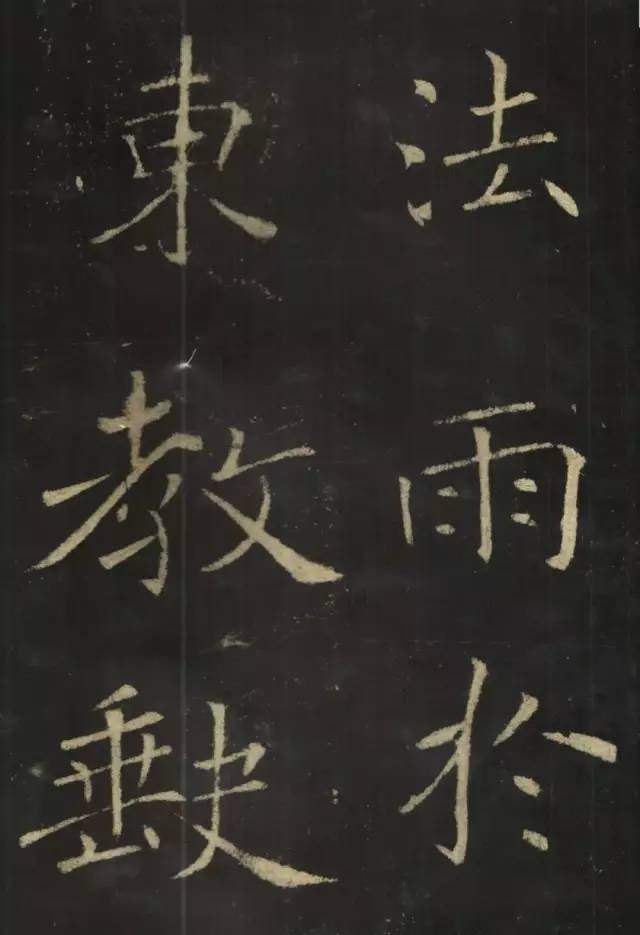 法雨於
東教缺